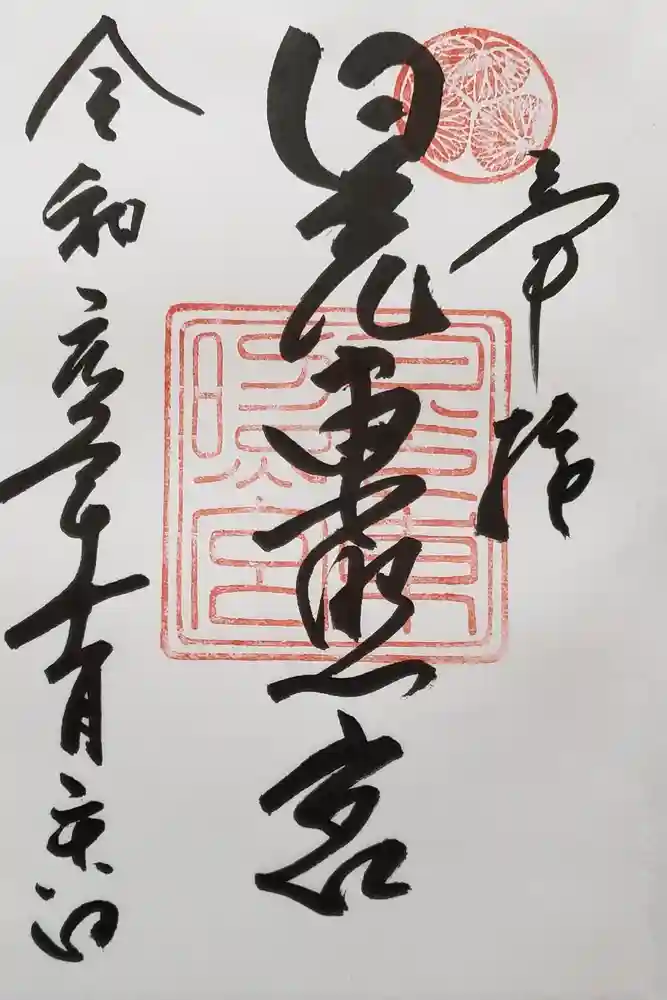 奉拝
日光東照宮
令和元年十一月日
日光東
照宮